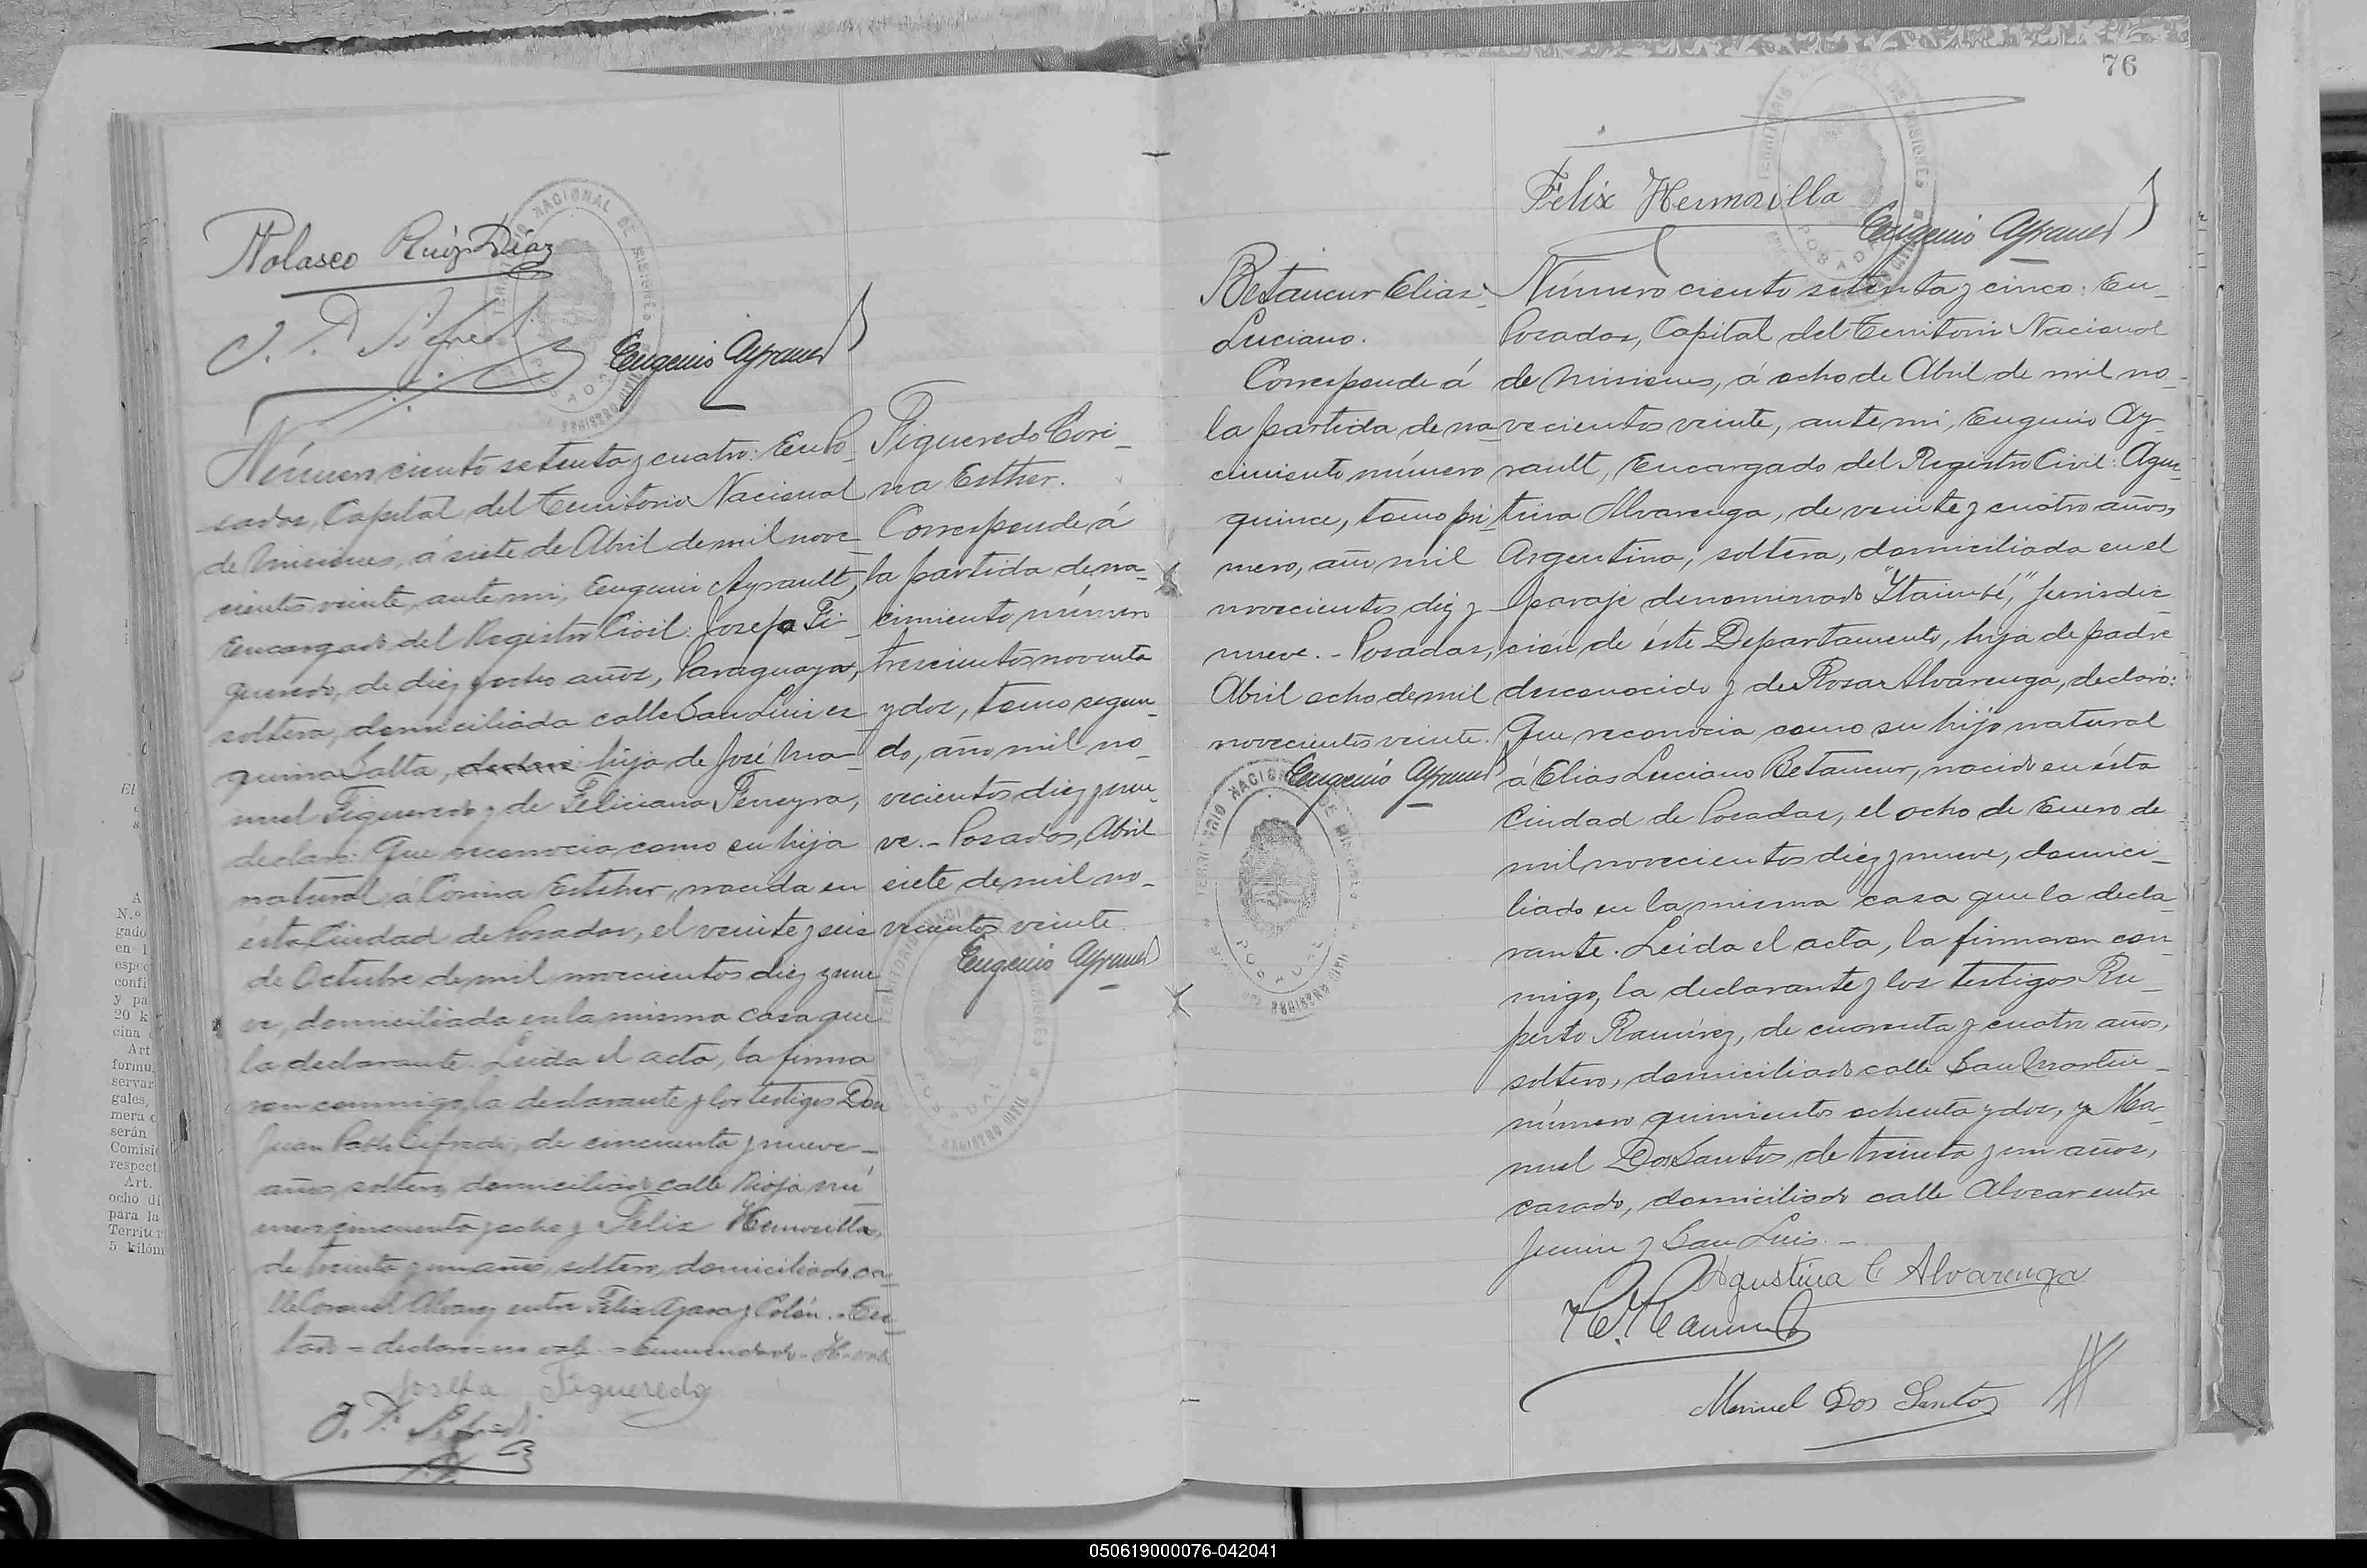 Nolasco Ruíz Díaz
Eugenio Ayrault
Número ciento setenta y cuatro: En Po-
sadas, Capital del Territorio Nacional
de Misiones, á siete de Abril de mil nove-
cientos veinte, ante mi, Eugenio Ayrault,
Encargado del Registro Civil: Josefa Fi-
gueredo, de diez y ocho años, Paraguaya,
soltera, domiciliada calle San Luis es-
quina Salta, declaró: hija de José Ma-
nuel Figueredo y de Feliciana Ferreyra,
declaró: Que reconocia como su hija
natural á Corina Esther, nacida en
ésta Ciudad de Posadas, el veinte y seis
de Octubre de mil novecientos diez y nue-
ve, domiciliada en la misma casa que
la declarante. Leida el acta, la firma-
ron conmigo, la declarante y los testigos Don
Juan Pablo Cifredi, de cincuenta y nueve
años, soltero, domiciliado calle Rioja nú-
mero cincuenta y ocho y Felix Hermosilla,
de treinta y un años, soltero, domiciliado ca-
lle Coronel Alvarez entre Felix Azara y Colón. - Tes-
tado = declaró = no vale = Enmendado - H - vale
Josefa Figueredo
Figueredo Cori-
na Esther.
Corresponde á
la partida de na-
cimiento número
trescientos noventa
y dos, tomo segun-
do, año mil no-
vecientos diez y nue-
ve. - Posadas, Abril
siete de mil no-
vecientos veinte.
Eugenio Ayrault
76
Felix Hermosilla
Eugenio Ayrault
Betancur Elias
Luciano.
Corresponde á
la partida de na-
cimiento número
quince, tomo pri-
mero, año mil
novecientos diez y
nueve. - Posadas,
Abril ocho de mil
novecientos veinte.
Eugenio Ayrault
Número ciento setenta y cinco: En
Posadas, Capital del Territorio Nacional
de Misiones, á ocho de Abril de mil no-
vecientos veinte, ante mi, Eugenio Ay-
rault, Encargado del Registro Civil: Agus-
tina Alvarenga, de veinte y cuatro años,
Argentina, soltera, domiciliada en el
paraje denominado "Ytaimbé," jurisdic-
ción de éste Departamento, hija de padre
desconocido y de Rosa Alvarenga, declaró:
Que reconocia como su hijo natural
á Elias Luciano Betancur, nacido en ésta
Ciudad de Posadas, el ocho de Enero de
mil novecientos diez y nueve, domici-
liado en la misma casa que la decla-
rante. Leida el acta, la firmaron con-
migo, la declarante y los testigos Ru-
perto Ramirez, de cuarenta y cuatro años,
soltero, domiciliado calle San Martin
número quinientos ochenta y dos, y Ma-
nuel Dos Santos, de treinta y un años,
casado, domiciliado calle Alvear entre
Junin y San Luis. -
Agustina C Alvarenga
Manuel Dos Santos
050619000076-042041